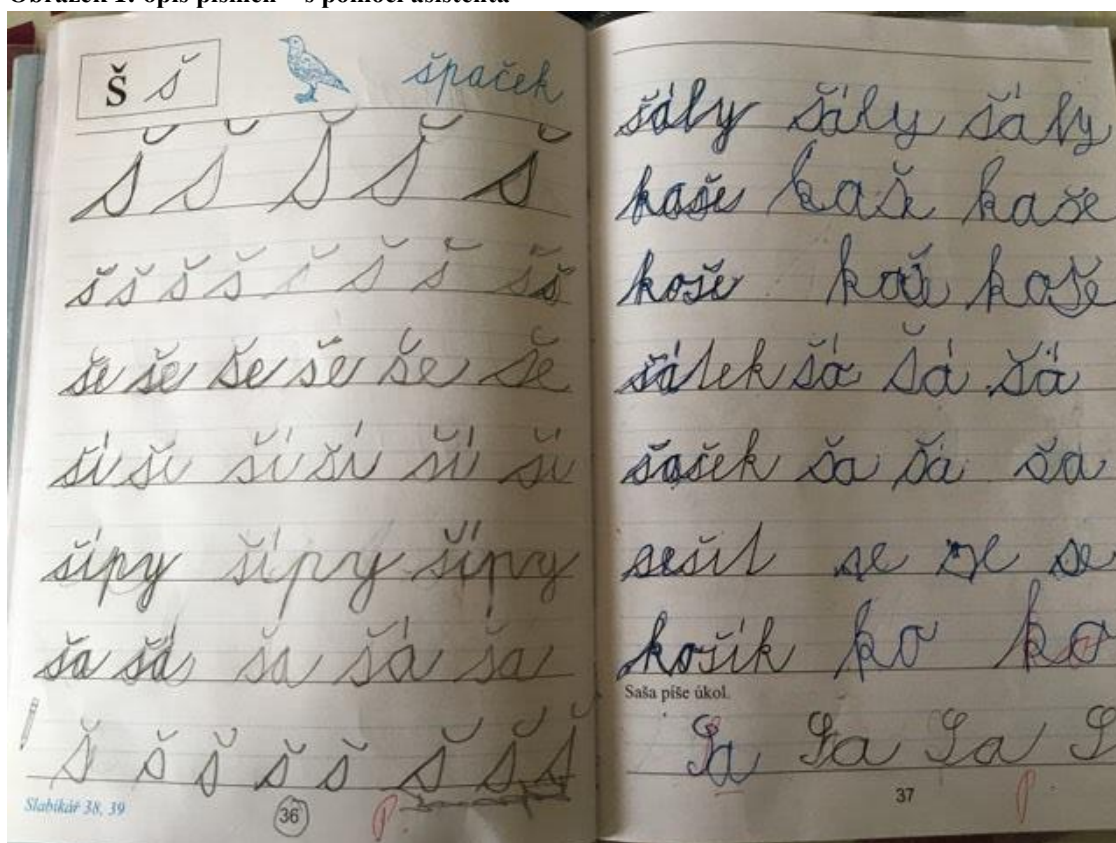 Obrázek 1: opis písmen – s pomocí asistenta
Š š špaček
š š š š š
š š š š š š š š š
še še še še še še
ší ši ší ší ší ší
šípy šípy šípy
ša šá ša šá ša
š š š š š š š š
Slabikář 38, 39
36
šály šály šály
kaše kaš kaše
koše koš koše
šálek šá šá šá
šašek ša ša ša
sešit se se se
košík ko ko
Saša píše úkol.
Sa Sa Sa S
37